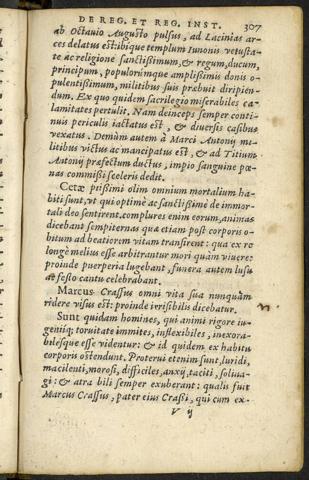 DE REG. ET REG. INST. 307
ab Octauio Augusto pulsus, ad Lacinias ar-
ces delatus est: ibique templum Iunonis vetusta-
te ac religione sanctissimum, & regum, ducum,
principum, populorúmque amplissimis donis o-
pulentissimum, militibus suis præbuit diripien-
dum. Ex quo quidem sacrilegio miserabiles ca-
lamitates pertulit. Nam deinceps semper conti-
nuis periculis iactatus est, & diuersis casibus
vexatus. Demùm autem à Marci Antonij mi-
litibus victus ac mancipatus est, & ad Titium
Antonij præfectum ductus, impio sanguine pœ-
nas commissi sceleris dedit.
Cetæ piissimi olim omnium mortalium ha-
biti sunt, vt qui optimè ac sanctissimè de immor-
tali deo sentirent. complures enim eorum, animas
dicebant sempiternas qua etiam post corporis o-
bitum ad beatiorem vitam transirent: qua ex re
longè melius esse arbitrantur mori quàm viuere:
proinde puerperia lugebant, funera autem lusu
ac festo cantu celebrabant.
Marcus Crassus omni vita sua nunquàm
ridere visus est: proinde irrisibilis dicebatur.
Sunt quidam homines, qui animi rigore in-
geniíq; toruitate immites, inflexibiles, inexora-
bilesque esse videntur: & id quidem ex habitu
corporis ostendunt. Proterui etenim sunt, luridi,
macilenti, morosi, difficiles, anxij, taciti, soliua-
gi: & atra bili semper exuberant: qualis fuit
Marcus Crassus, pater eius Crassi, qui cum ex-
V ij